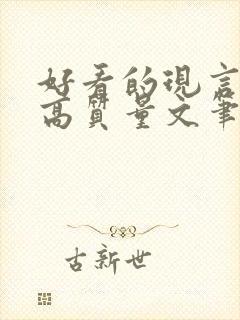 好看的現言
高質量文筆
古新世